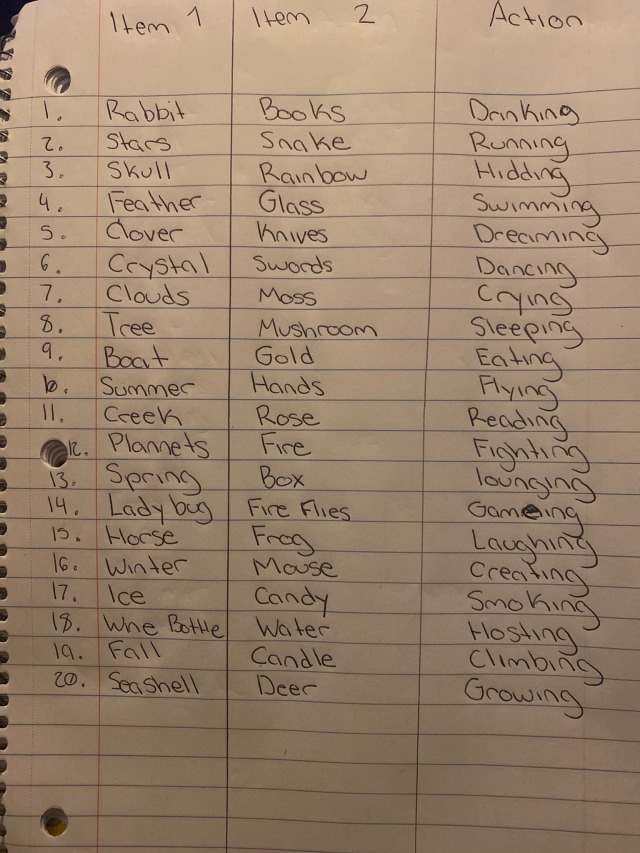 Item 1 Item 2 Action
1. Rabbit Books Drinking
2. Stars Snake Running
3. Skull Rainbow Hidding
4. Feather Glass Swimming
5. Clover Knives Dreaming
6. Crystal Swords Dancing
7. Clouds Moss Crying
8. Tree Mushroom Sleeping
9. Boat Gold Eating
10. Summer Hands Flying
11. Creek Rose Reading
12. Plannets Fire Fighting
13. Spring Box lounging
14. Lady bug Fire Flies Gameing
15. Horse Frog Laughing
16. Winter Mouse Creating
17. Ice Candy Smoking
18. Wne Bottle Water Hosting
19. Fall Candle Climbing
20. Seashell Deer Growing